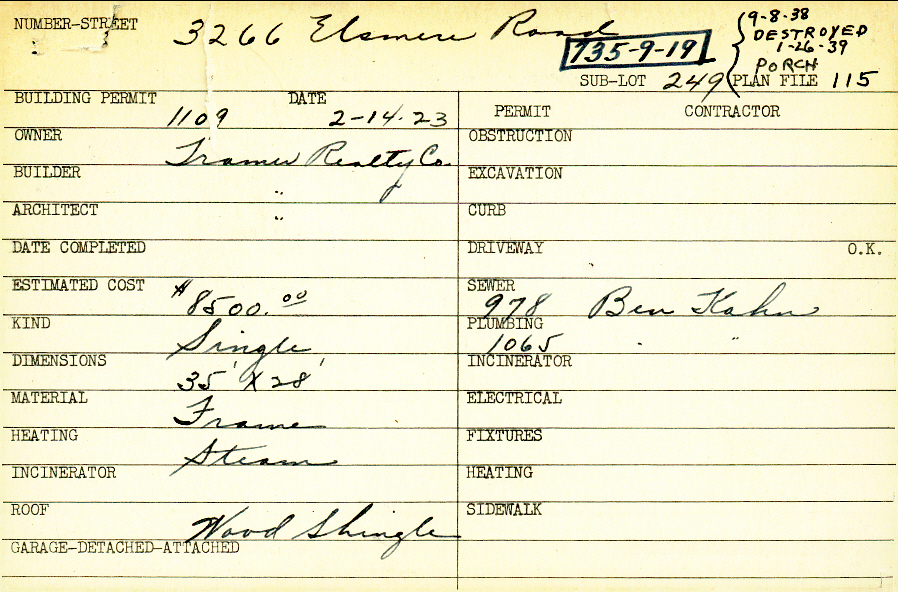 NUMBER-STREET 3266 Elsmere Road
735-9-19
9-8-38
DESTROYED
1-26-39
PORCH
SUB-LOT 249 PLAN FILE 115
BUILDING PERMIT 1109 DATE 2-14-23
PERMIT CONTRACTOR
OWNER Tramer Realty Co.
OBSTRUCTION
BUILDER "
EXCAVATION
ARCHITECT "
CURB
DATE COMPLETED
DRIVEWAY O.K.
ESTIMATED COST $8500.00
SEWER 978 Ben Kahn
KIND Single
PLUMBING 1065 " "
DIMENSIONS 35' X 28'
INCINERATOR
MATERIAL Frame
ELECTRICAL
HEATING Steam
FIXTURES
INCINERATOR
HEATING
ROOF Wood Shingle
SIDEWALK
GARAGE-DETACHED-ATTACHED